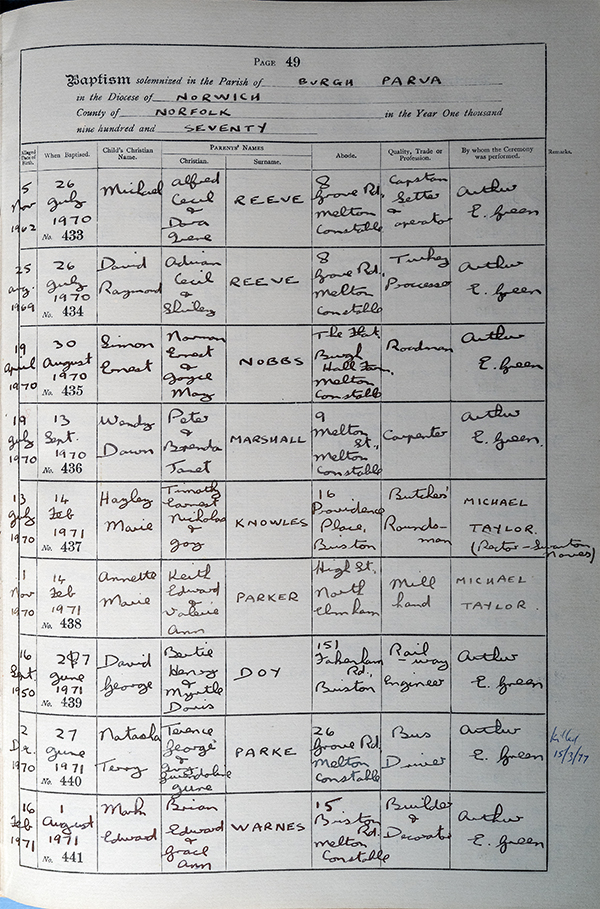 PAGE 49
Baptism solemnized in the Parish of BURGH PARVA
in the Diocese of NORWICH
County of NORFOLK in the Year One thousand
nine hundred and SEVENTY
Alleged Date of Birth. When Baptised. Child's Christian Name. PARENTS' NAMES Christian. Surname. Abode. Quality, Trade or Profession. By whom the Ceremony was performed. Remarks.
5 Nov 1962
26 July 1970
No. 433
Michael
Alfred Cecil & Dora Irene
REEVE
8 Grove Rd, Melton Constable
Capstan Setter & operator
Arthur E. Green
25 Aug. 1969
26 July 1970
No. 434
David Raymond
Adrian Cecil & Shirley
REEVE
8 Grove Rd, Melton Constable
Turkey Processer
Arthur E. Green
19 April 1970
30 August 1970
No. 435
Simon Ernest
Norman Ernest & Joyce May
NOBBS
The Flat, Burgh Hall Farm, Melton Constable
Roadman
Arthur E. Green
19 July 1970
13 Sept. 1970
No. 436
Wendy Dawn
Peter & Brenda Janet
MARSHALL
9 Melton St., Melton Constable
Carpenter
Arthur E. Green.
13 July 1970
14 Feb 1971
No. 437
Hayley Marie
Timothy Earnest Nicholas & Joy
KNOWLES
16 Providence Place, Briston
Butcher's Roundsman
MICHAEL TAYLOR.
(Rector - Swanton Novers)
1 Nov 1970
14 Feb 1971
No. 438
Annette Marie
Keith Edward & Valerie Ann
PARKER
High St. North Elmham
Mill hand
MICHAEL TAYLOR.
16 Sept 1950
27 June 1971
No. 439
David George
Bertie Henry & Myrtle Doris
DOY
151 Fakenham Rd, Briston
Rail-way Engineer
Arthur E. Green
2 Dec. 1970
27 June 1971
No. 440
Natasha Terry
Terence George & June
PARKE
26 Grove Rd Melton Constable
Bus Driver
Arthur E. Green
15/3/77
16 Feb 1971
1 August 1971
No. 441
Mark Edward
Brian Edward & Grace Ann
WARNES
15 Briston Rd. Melton Constable
Builder & Decorator
Arthur E. Green